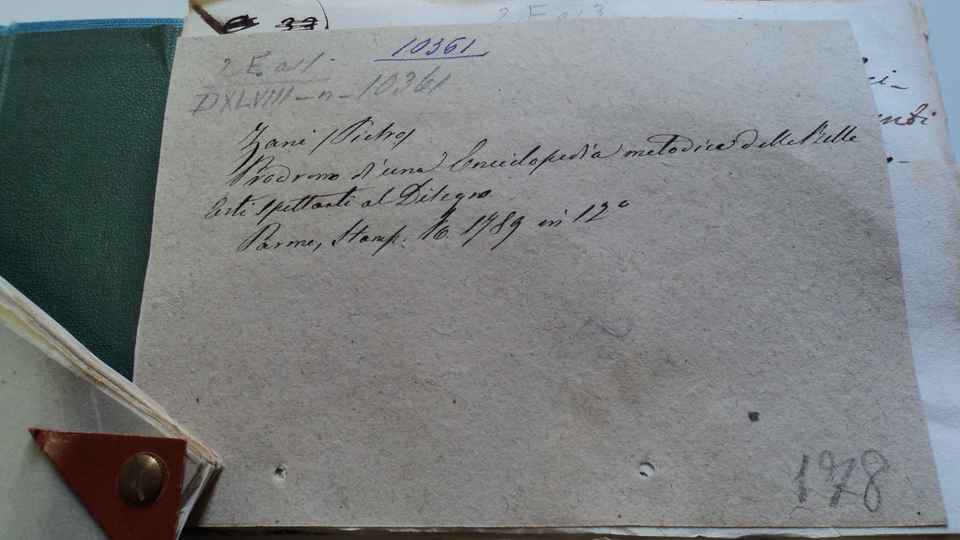 33
10361
2 E a 1.
DXLVIII - n - 10361
Zani (Pietro)
Prodromo d'una Enciclopedia metodica delle Belle
Arti spettanti al Disegno
Parma, Stamp. 1789 in 12°
178